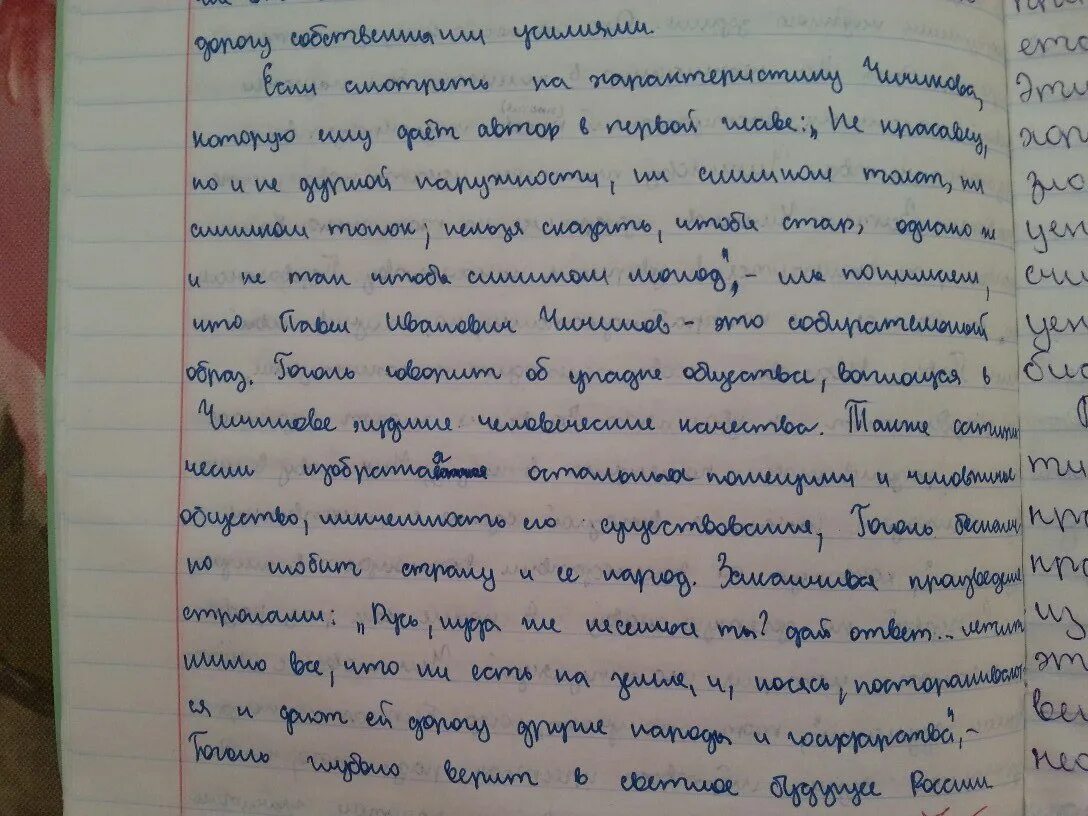 дорогу собственными усилиями.
Если смотреть на характеристику Чичикова,
которую ему даёт автор в первой главе: „Не красавец,
но и не дурной наружности, ни слишком толст, ни
слишком тонок; нельзя сказать, чтобы стар, однако ж
и не так чтобы слишком молод", - мы понимаем,
что Павел Иванович Чичиков - это собирательный
образ. Гоголь говорит об упадке общества, воплощая в
Чичикове худшие человеческие качества. Также сатири
чески изобража остальных помещики и чиновничье
общество, никчемность его существования, Гоголь бесконеч
но любит страну и ее народ. Заканчивая произведение
строками: „Русь, куда же несешься ты? дай ответ... летит
мимо все, что ни есть на земле, и, косясь, посторанивают
ся и дают ей дорогу другие народы и государства", -
Гоголь глубоко верит в светлое будущее России
ето
Эти
хор
зло
цен
счи
цен
бис
ти
про
про
из
эт
вел
нес